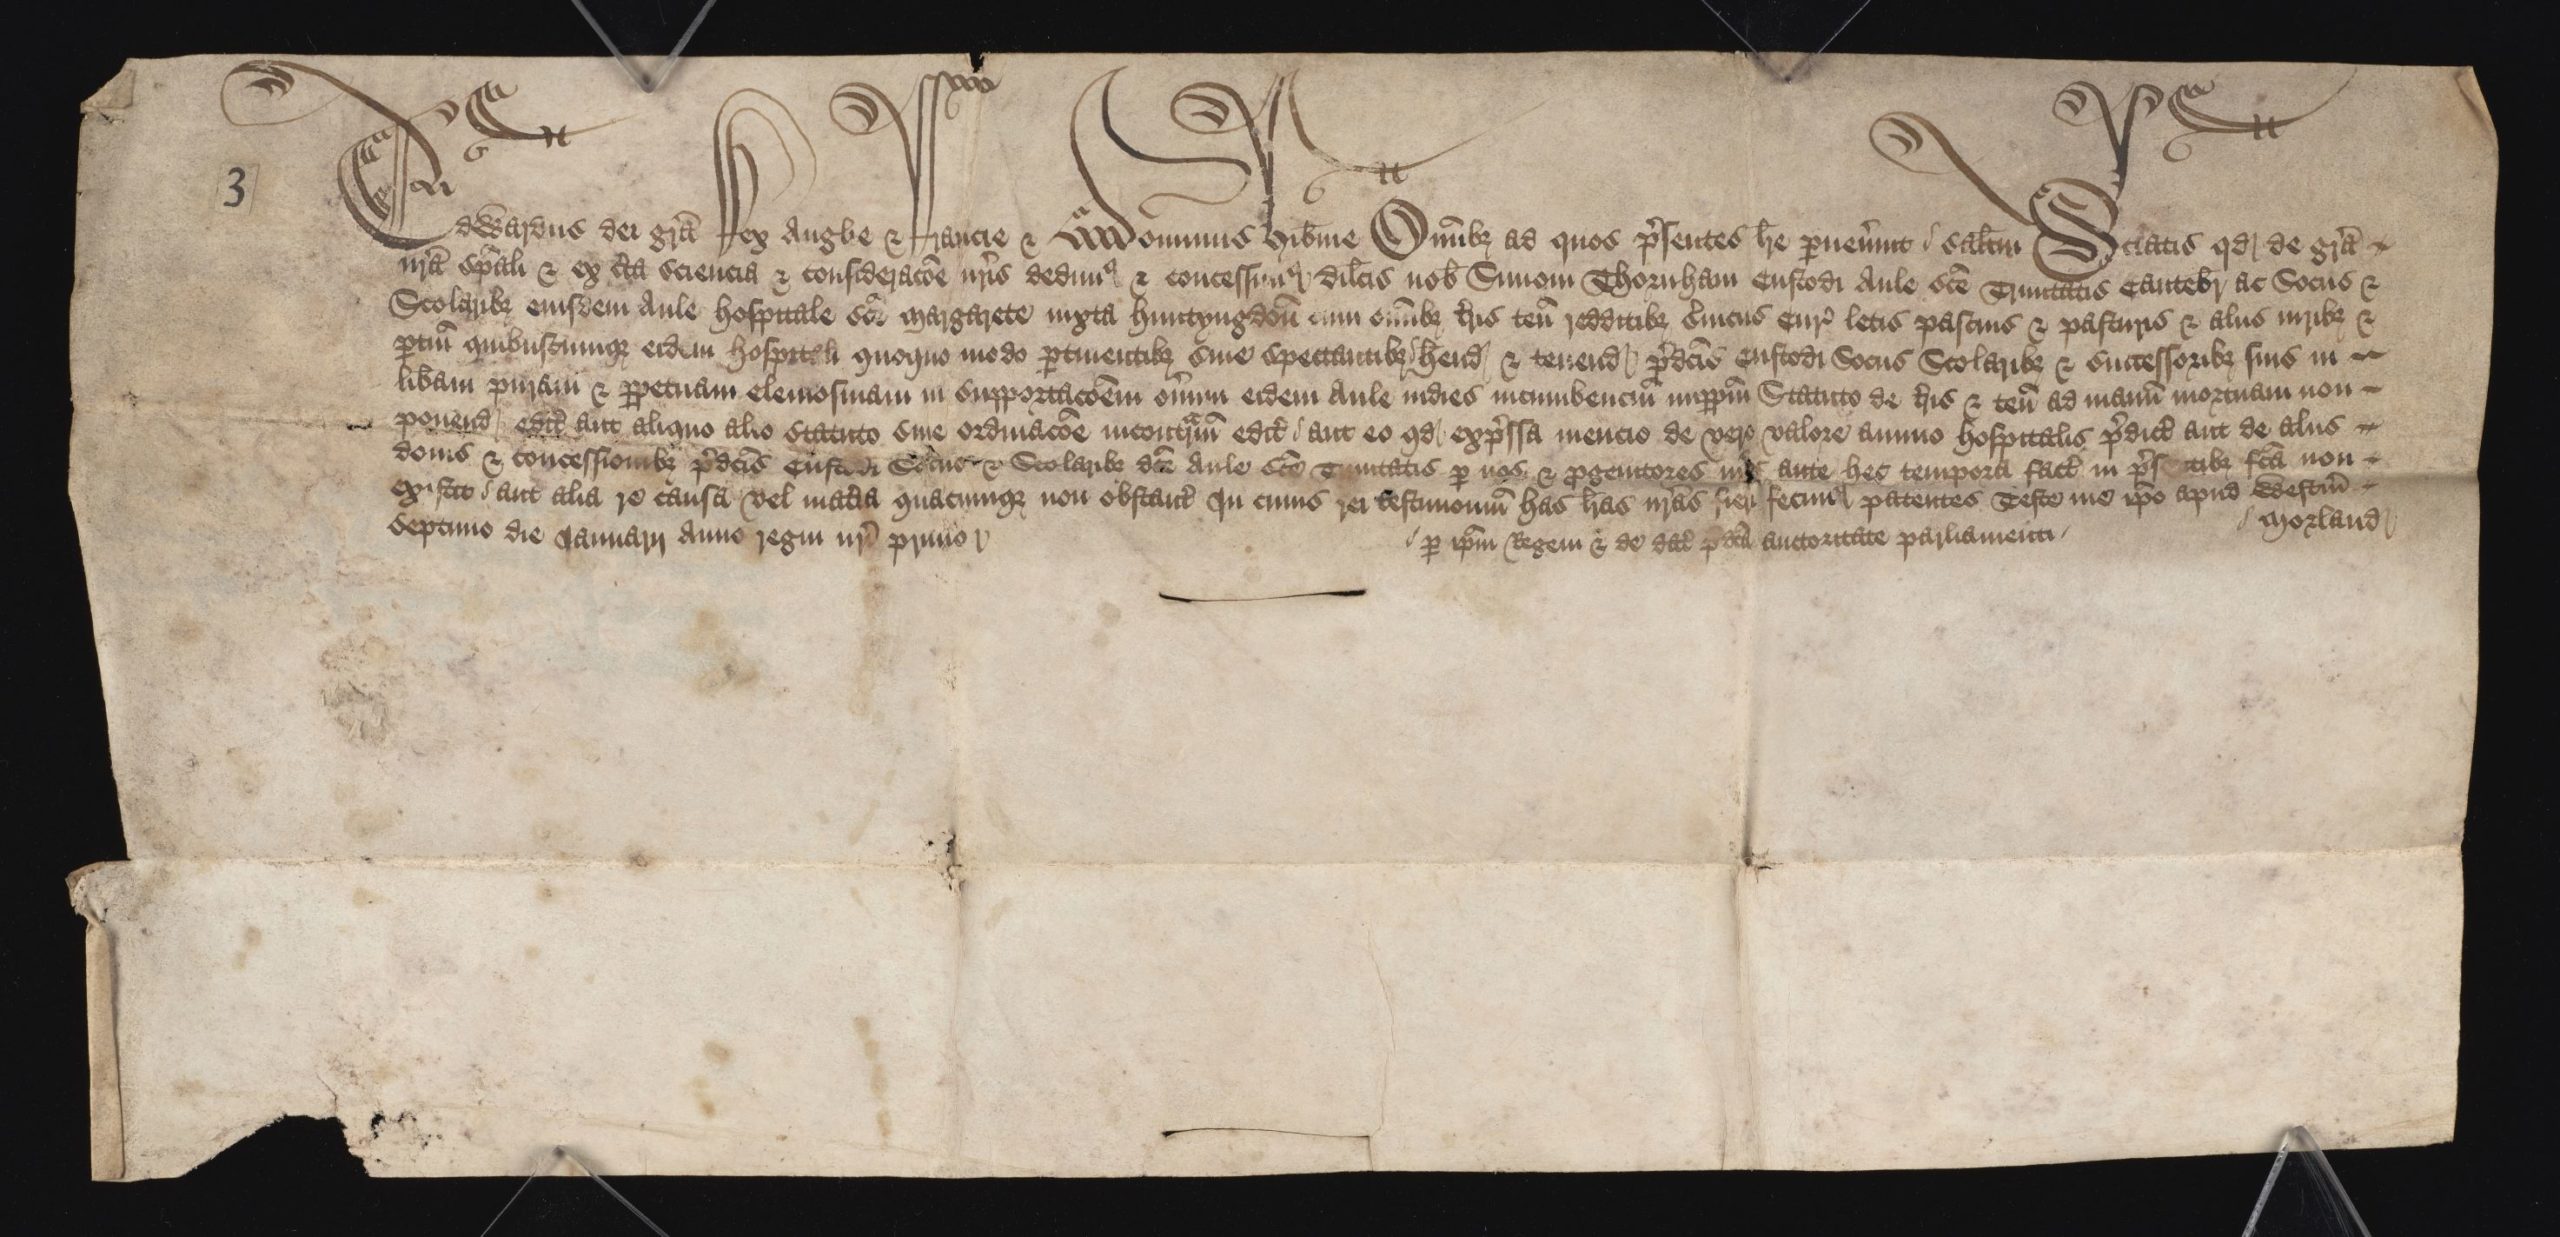 3
Edwardus dei grã Rex Anglie & ffrancie & Dominus Hib̃nie Om̃ib3 ad quos p̃sentes lr̃e p̃uen̾int saltm̃ Sciatis qd de grã
nr̃a sp̃ali & ex c̃ta sciencia & consideracõe nr̃is dedim⁹ & concessim⁹ dil̃cis nob̃ Simoni Thornham Custodi Aule sc̃e Trinitatis Cantebr̃ ac Sociis &
Scolarib3 eiusdem Aule hospitale sc̃e Margarete iuxta Huntyngdoñ cum om̃ib3 t̃ris teñ redditib3 s̾uiciis Cur̃ letis pascuis & pasturis & aliis iurib3 &
p̃tiñ quibuscumq3 eidem hospitali quoquo modo p̃tinentib3 siue spectantib3 h̃end & tenend p̃dc̃is Custodi Sociis Scolarib3 & successorib3 suis in
lib̃am puram & pp̃etuam elemosinam in supportac̃oem on̾um eidem Aule indies incumbenciũ impp̃m Statuto de t̃ris & teñ ad manũ mortuam non
ponend edit̃ aut aliquo alio statuto siue ordinacõe incontrariũ edit̃ aut eo qd exp̃ssa mencio de vero valore annuo hospitalis p̃dict̃ aut de aliis
donis & concessionib3 p̃dc̃is Custodi Sociis & Scolarib3 dc̃e Aule sc̃e Trinitatis p̃ nos & p̃genitores nr̃os ante hec tempora fact̃ in p̃sentib3 fc̃a non
existit aut alia re causa vel mat̃ia quacumq3 non obstant̃ In cuius rei testimoniũ has lr̃as nr̃as fieri fecim⁹ patentes Teste me ip̃o apud Westm̃
septimo die Januarij Anno regni nr̃i primo
p̃ ip̃m Regem & de dat̃ p̃dc̃a auctoritate parliamenti
Morland